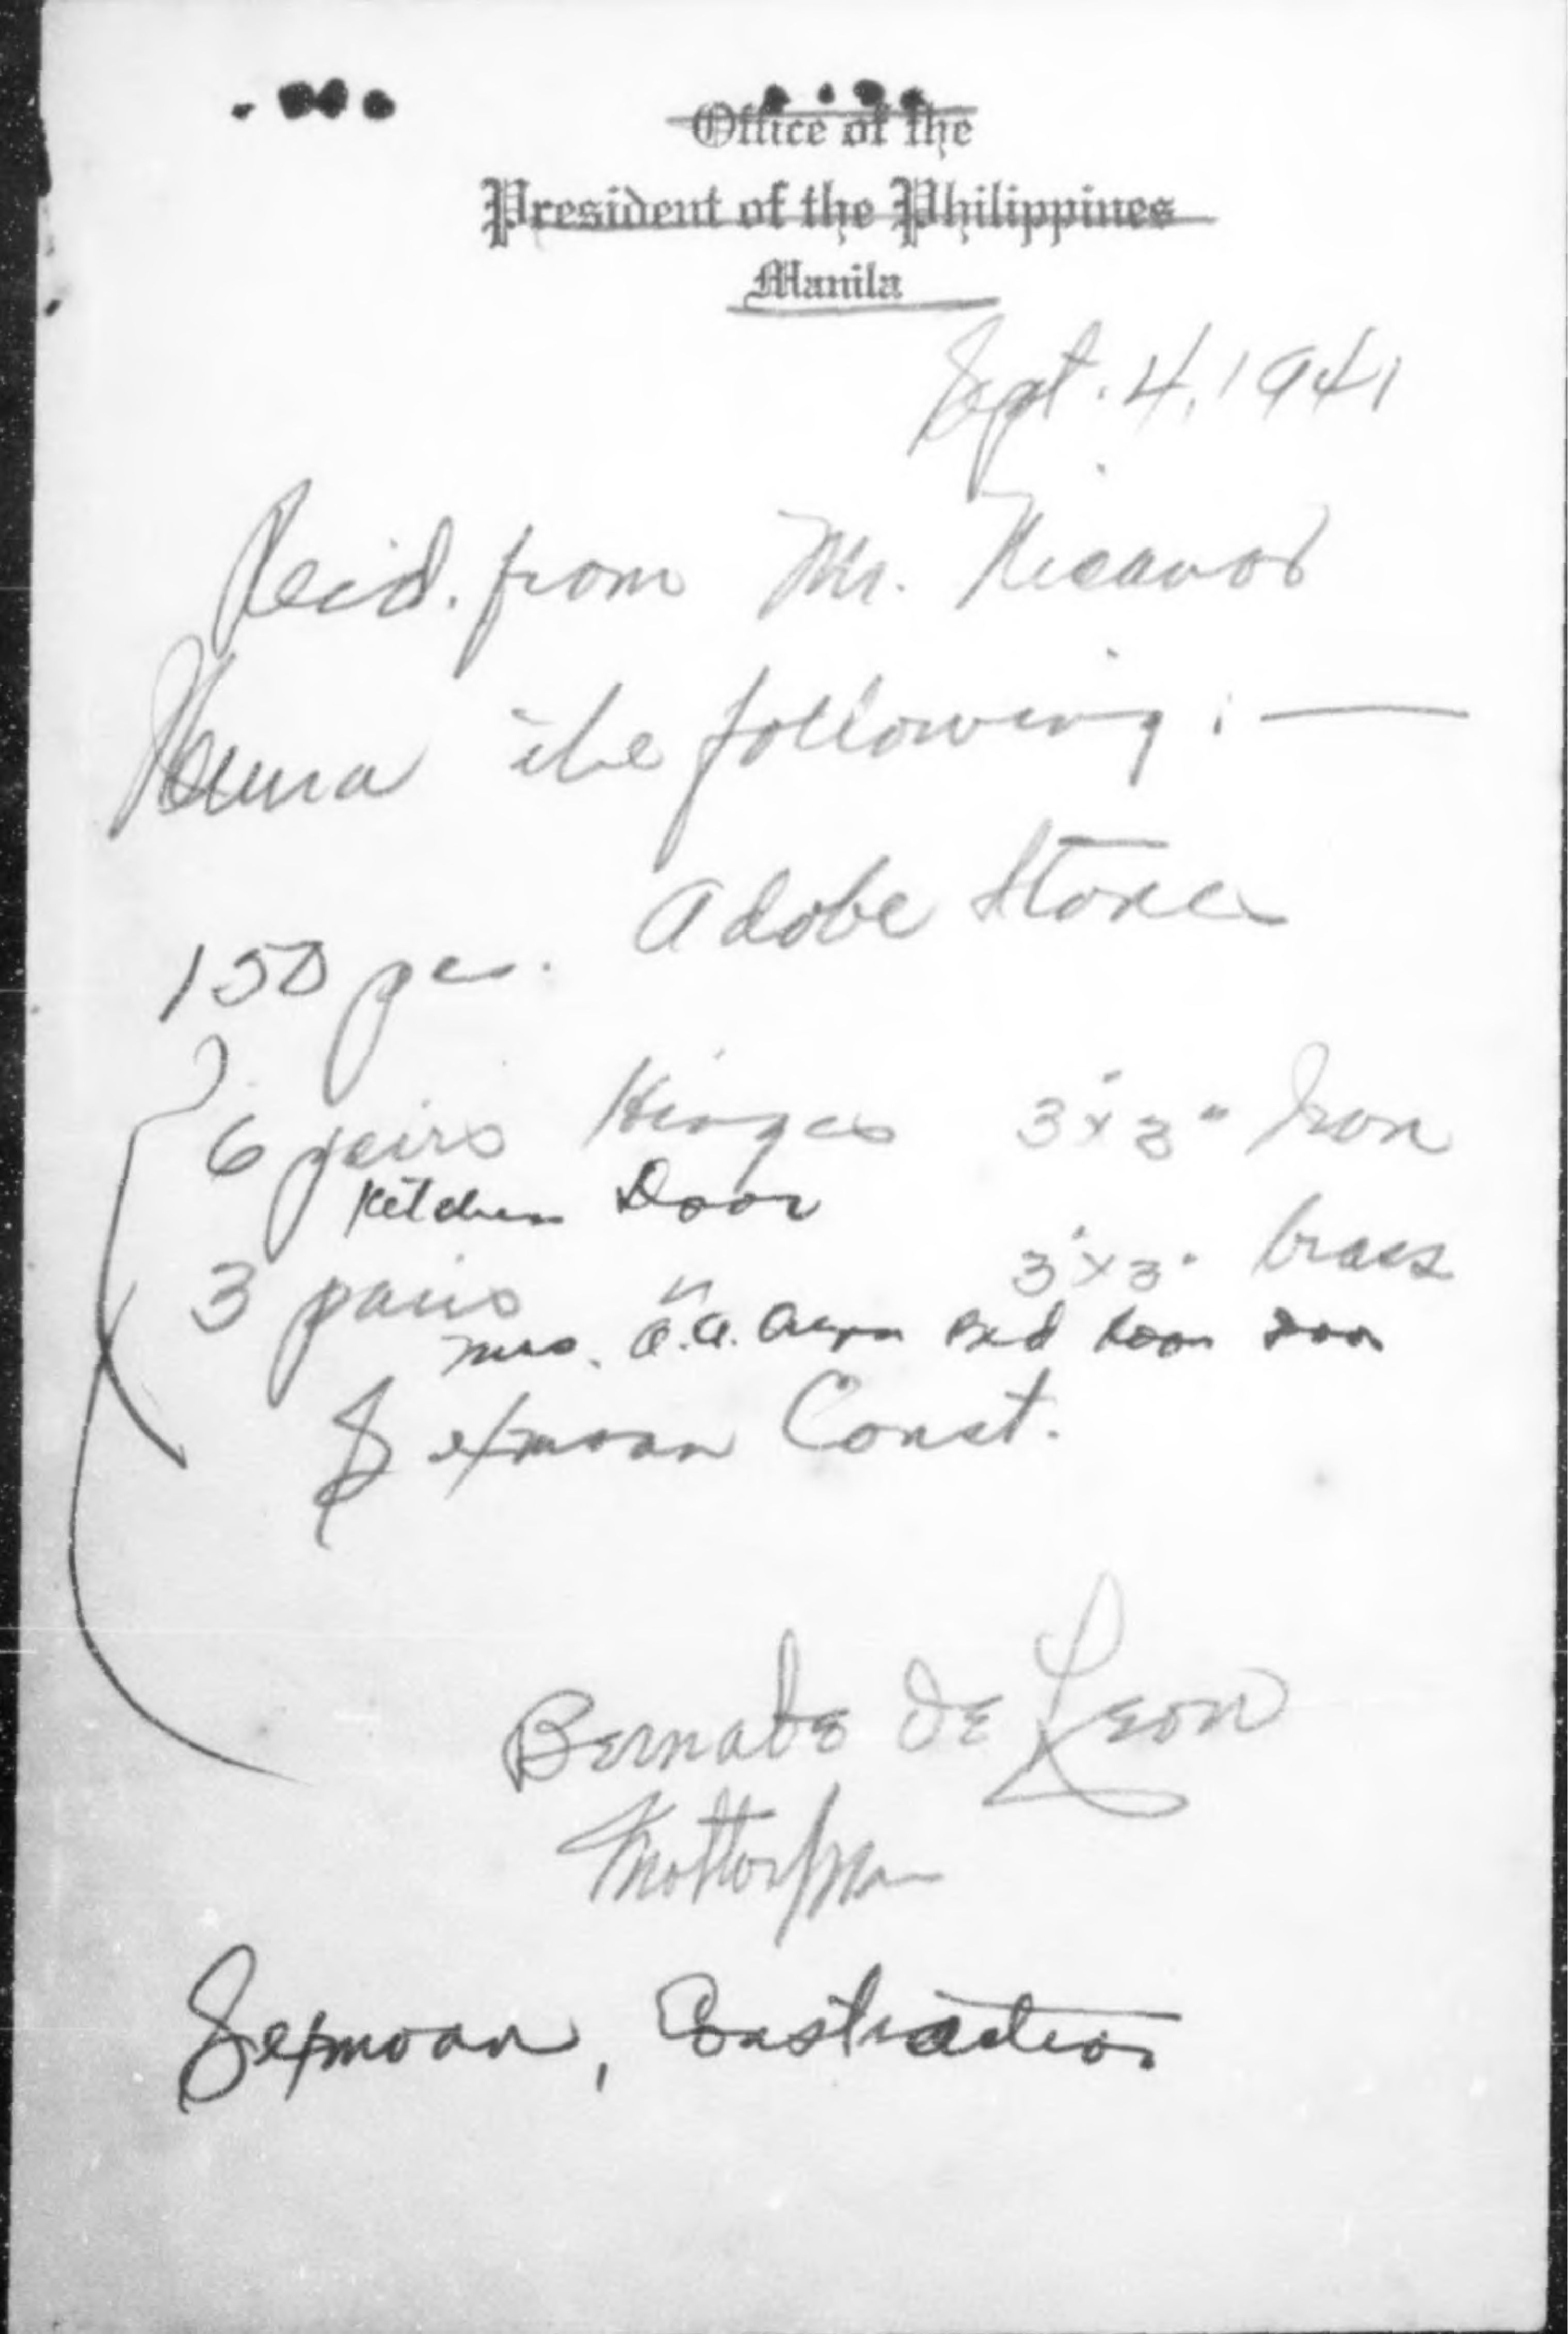 Office of the
President of the Philippines
Manila
Sept. 4, 1941
Recd. from Mr. Nicanor
the following : —
150 pcs. Adobe Stones
6 pairs Hinges 3"x3" Iron
Kitchen Door
3 pairs " 3"x3" brass
Mrs. A.A. Bed Room Door
Sexmoan Const.
Bernabe de Leon
Sexmoan, Construction